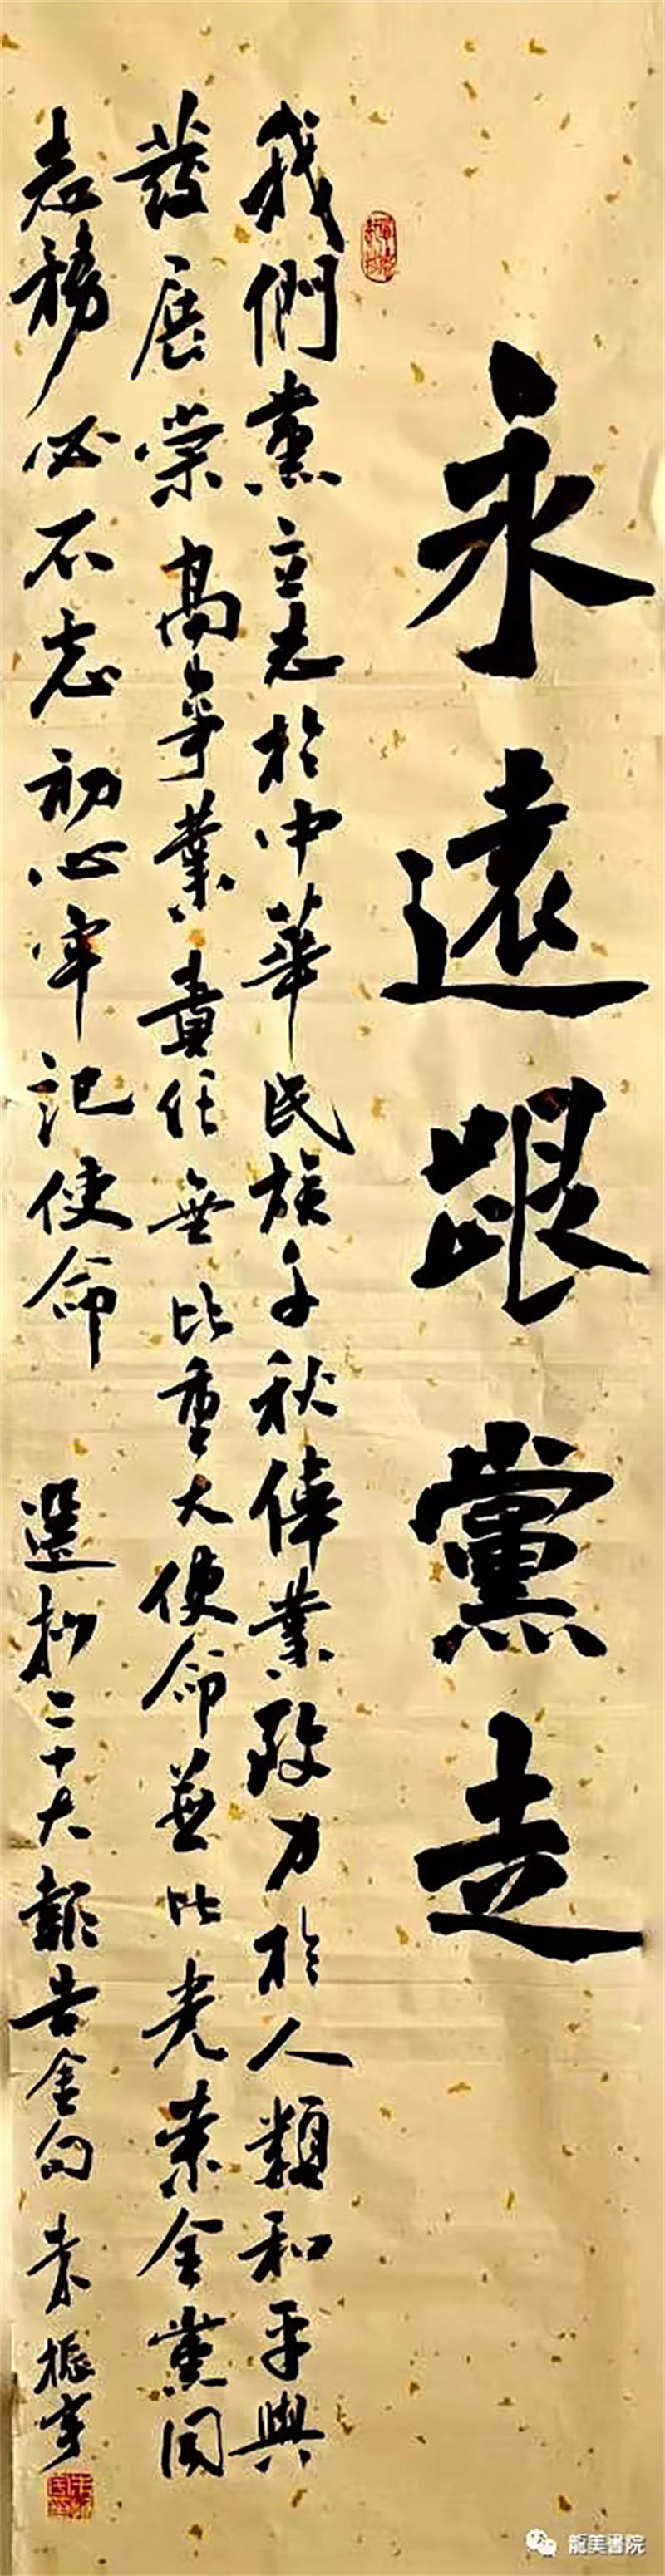 永遠跟黨走
我們黨立志於中華民族千秋偉業致力於人類和平與
發展崇高事業責任無比重大使命無比光榮全黨同
志務必不忘初心牢記使命 選抄二十大報告金句 袁振宇
龍美書院